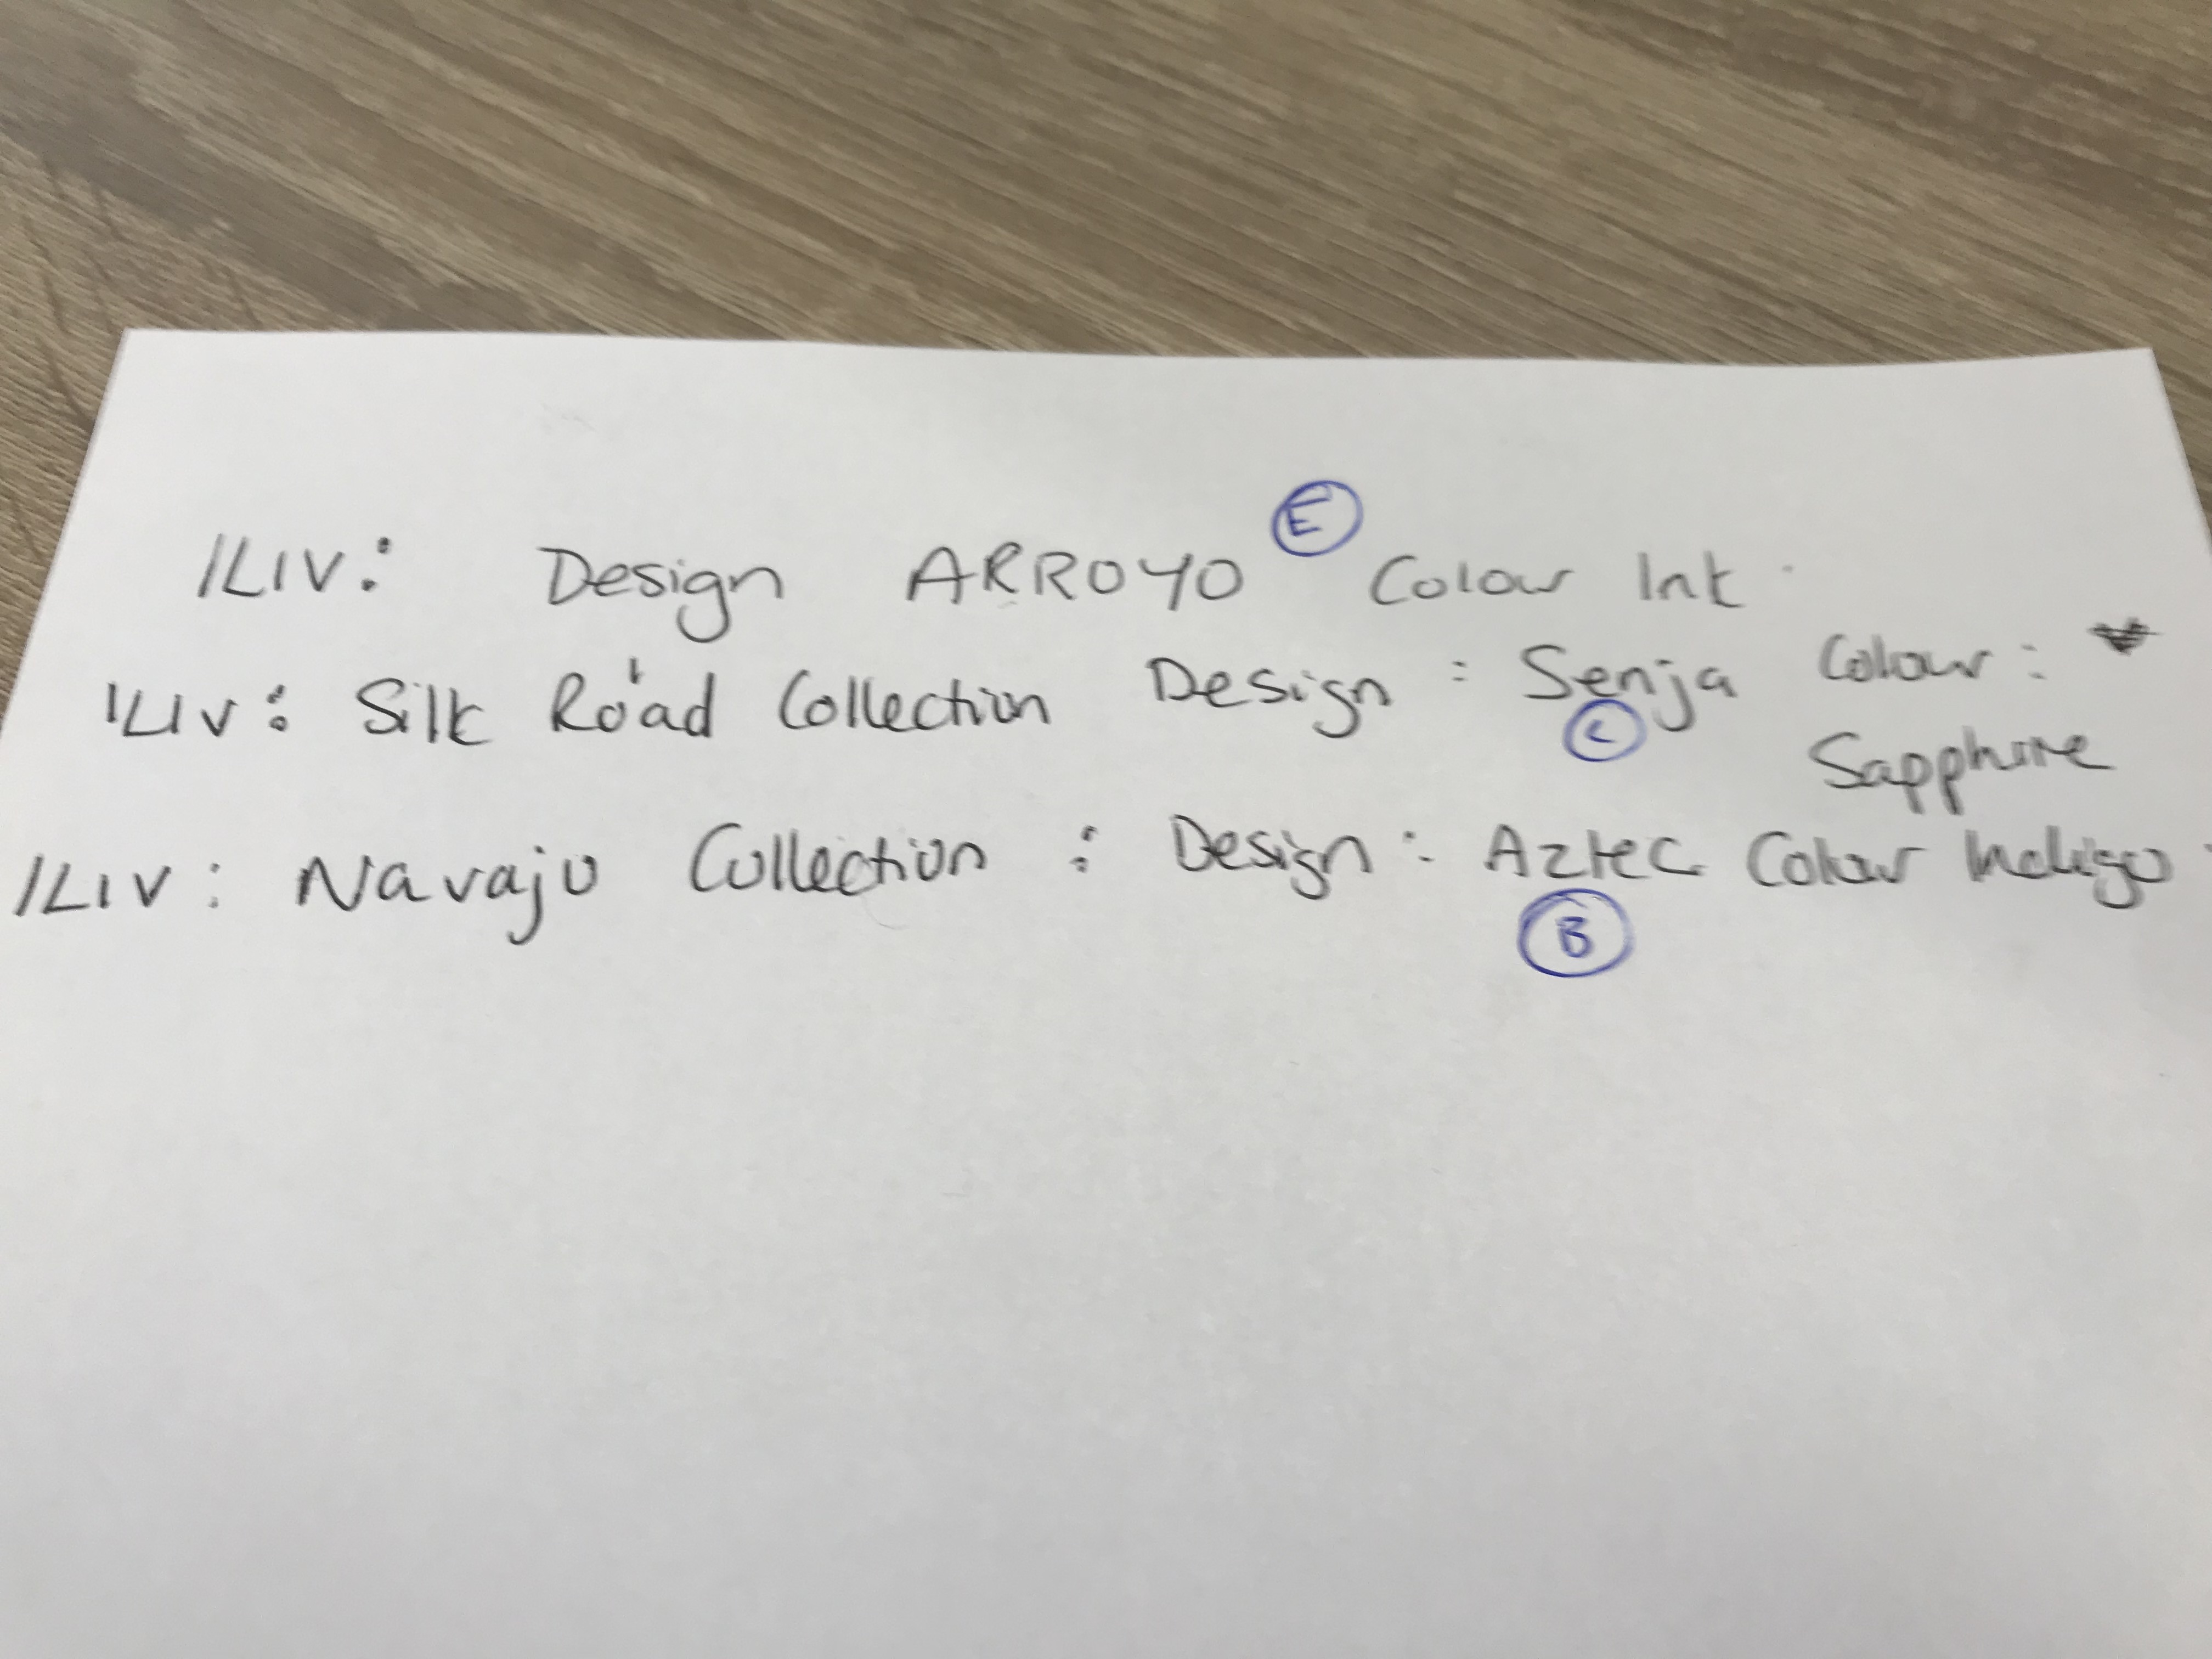 ILIV: Design ARROYO (E) Colour Ink
ILIV: Silk Road Collection Design : Senja Colour :
(C) Sapphire
ILIV: Navajo Collection : Design : Aztec Colour Indigo
(B)